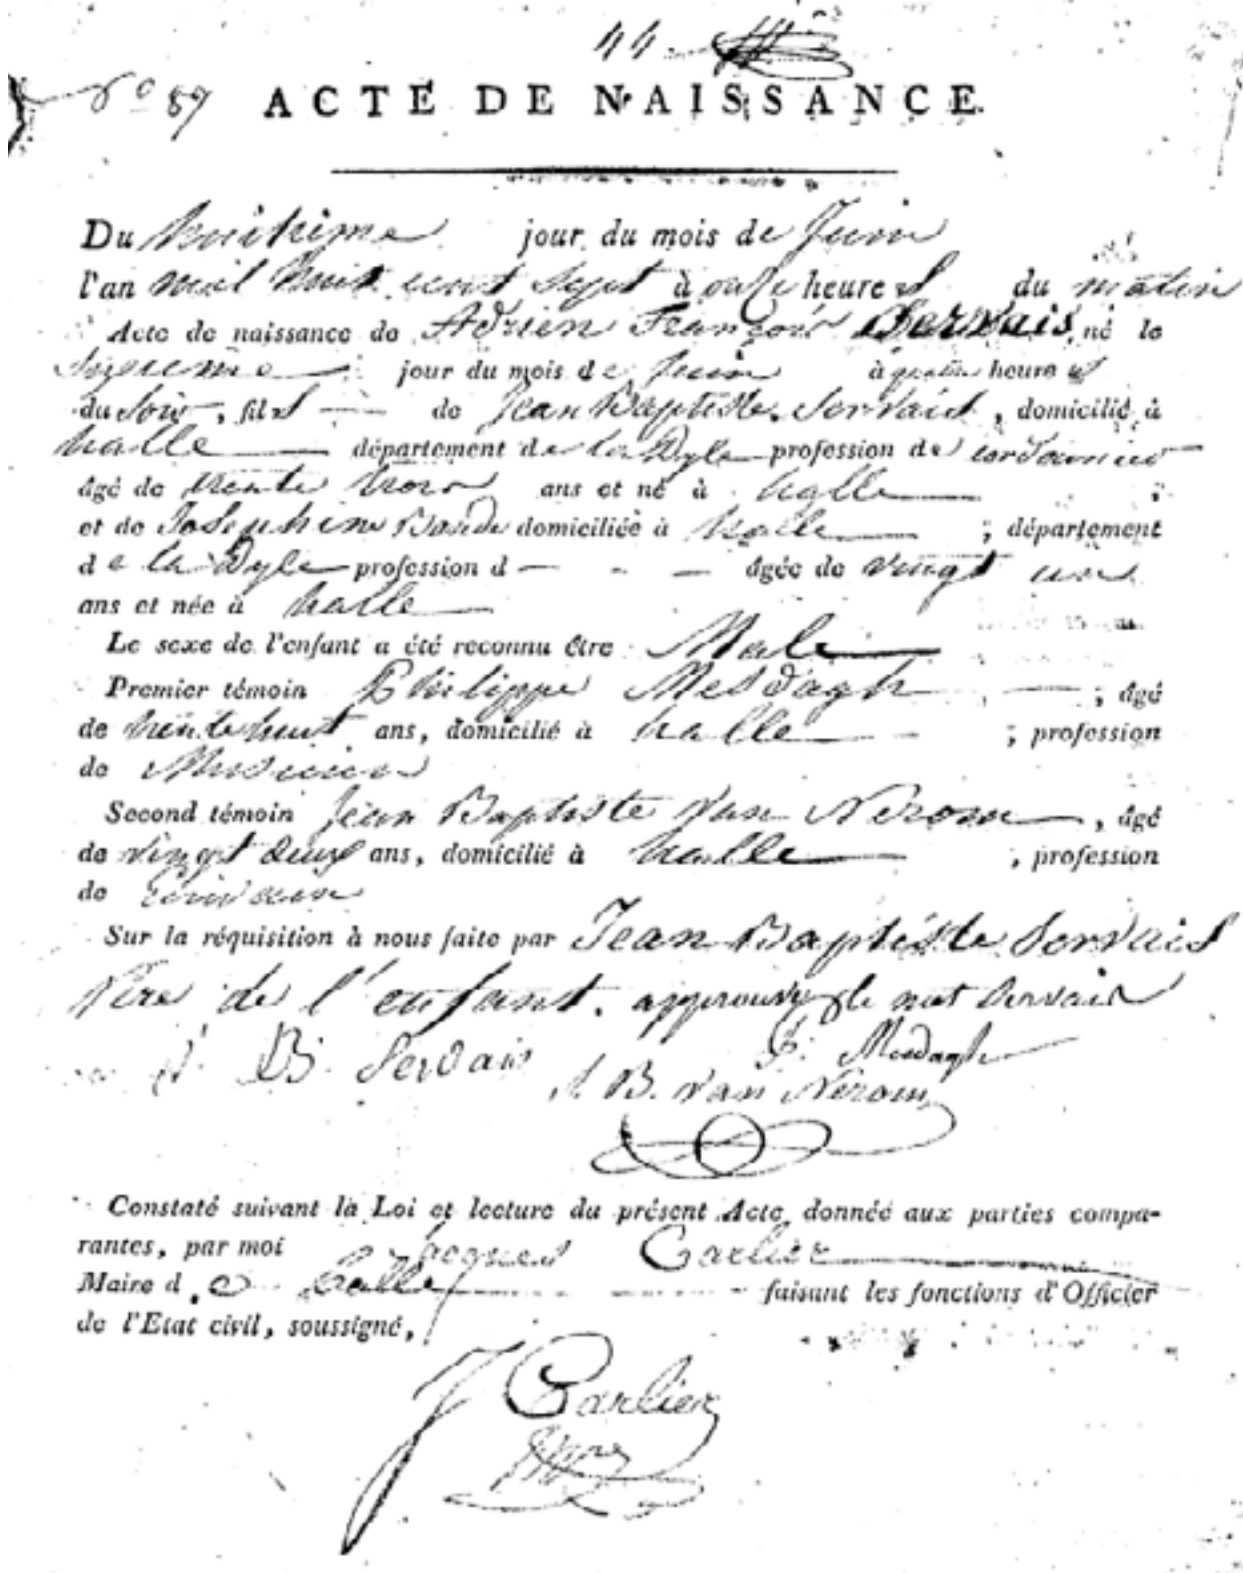 44.
89 ACTE DE NAISSANCE.
Du huitieme jour du mois de Juin
l'an mil huit cent sept à onze heures du matin
Acte de naissance de Adrien François Servais, né le
sixieme jour du mois de Juin à quatre heures
du soir, fils de Jean Baptiste Servais, domicilié à
halle département de la Dyle profession de cordonnier
âgé de trente trois ans et né à halle ;
et de Josephine Bande domiciliée à halle ; département
de la Dyle profession d — - — âgée de vingt un
ans et née à halle
Le sexe de l'enfant a été reconnu être Male
Premier témoin Philippe Mesdagh ; âgé
de trente huit ans, domicilié à halle ; profession
de Musicien
Second témoin Jean Baptiste Van Nerom, âgé
de vingt deux ans, domicilié à halle, profession
de
Sur la réquisition à nous faite par Jean Baptiste Servais
Père de l'enfant. approuvé le mot Servais
B. Servais P. Mesdagh
J. B. Van Nerom
Constaté suivant la Loi et lecture du présent Acte donnée aux parties compa-
rantes, par moi Jacques Carlier
Maire de halle faisant les fonctions d'Officier
de l'Etat civil, soussigné,
J Carlier